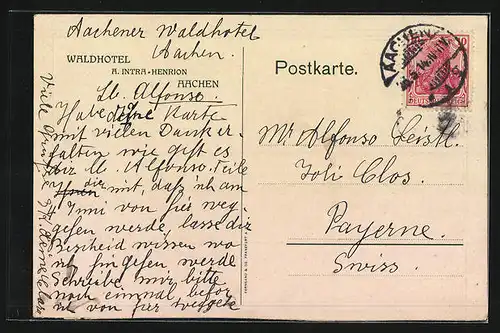 Aachener Waldhotel
Aachen.
WALDHOTEL
A. INTRA-HENRION
AACHEN
Postkarte.
AACHEN
Lb. Alfonso.
Habe deine Karte
mit vielen Dank er-
halten wie geht es
dir lb. Alfonso. Teile
dir mit, daß ich am
von hier weg-
gehen werde, lasse dir
Bescheid wissen wo
ich hingehen werde
Schreibe mir bitte
noch einmal bevor
ich von hier weggehe
Viele Grüsse
Mr Alfonso
Joli Clos.
Payerne.
Swiss.